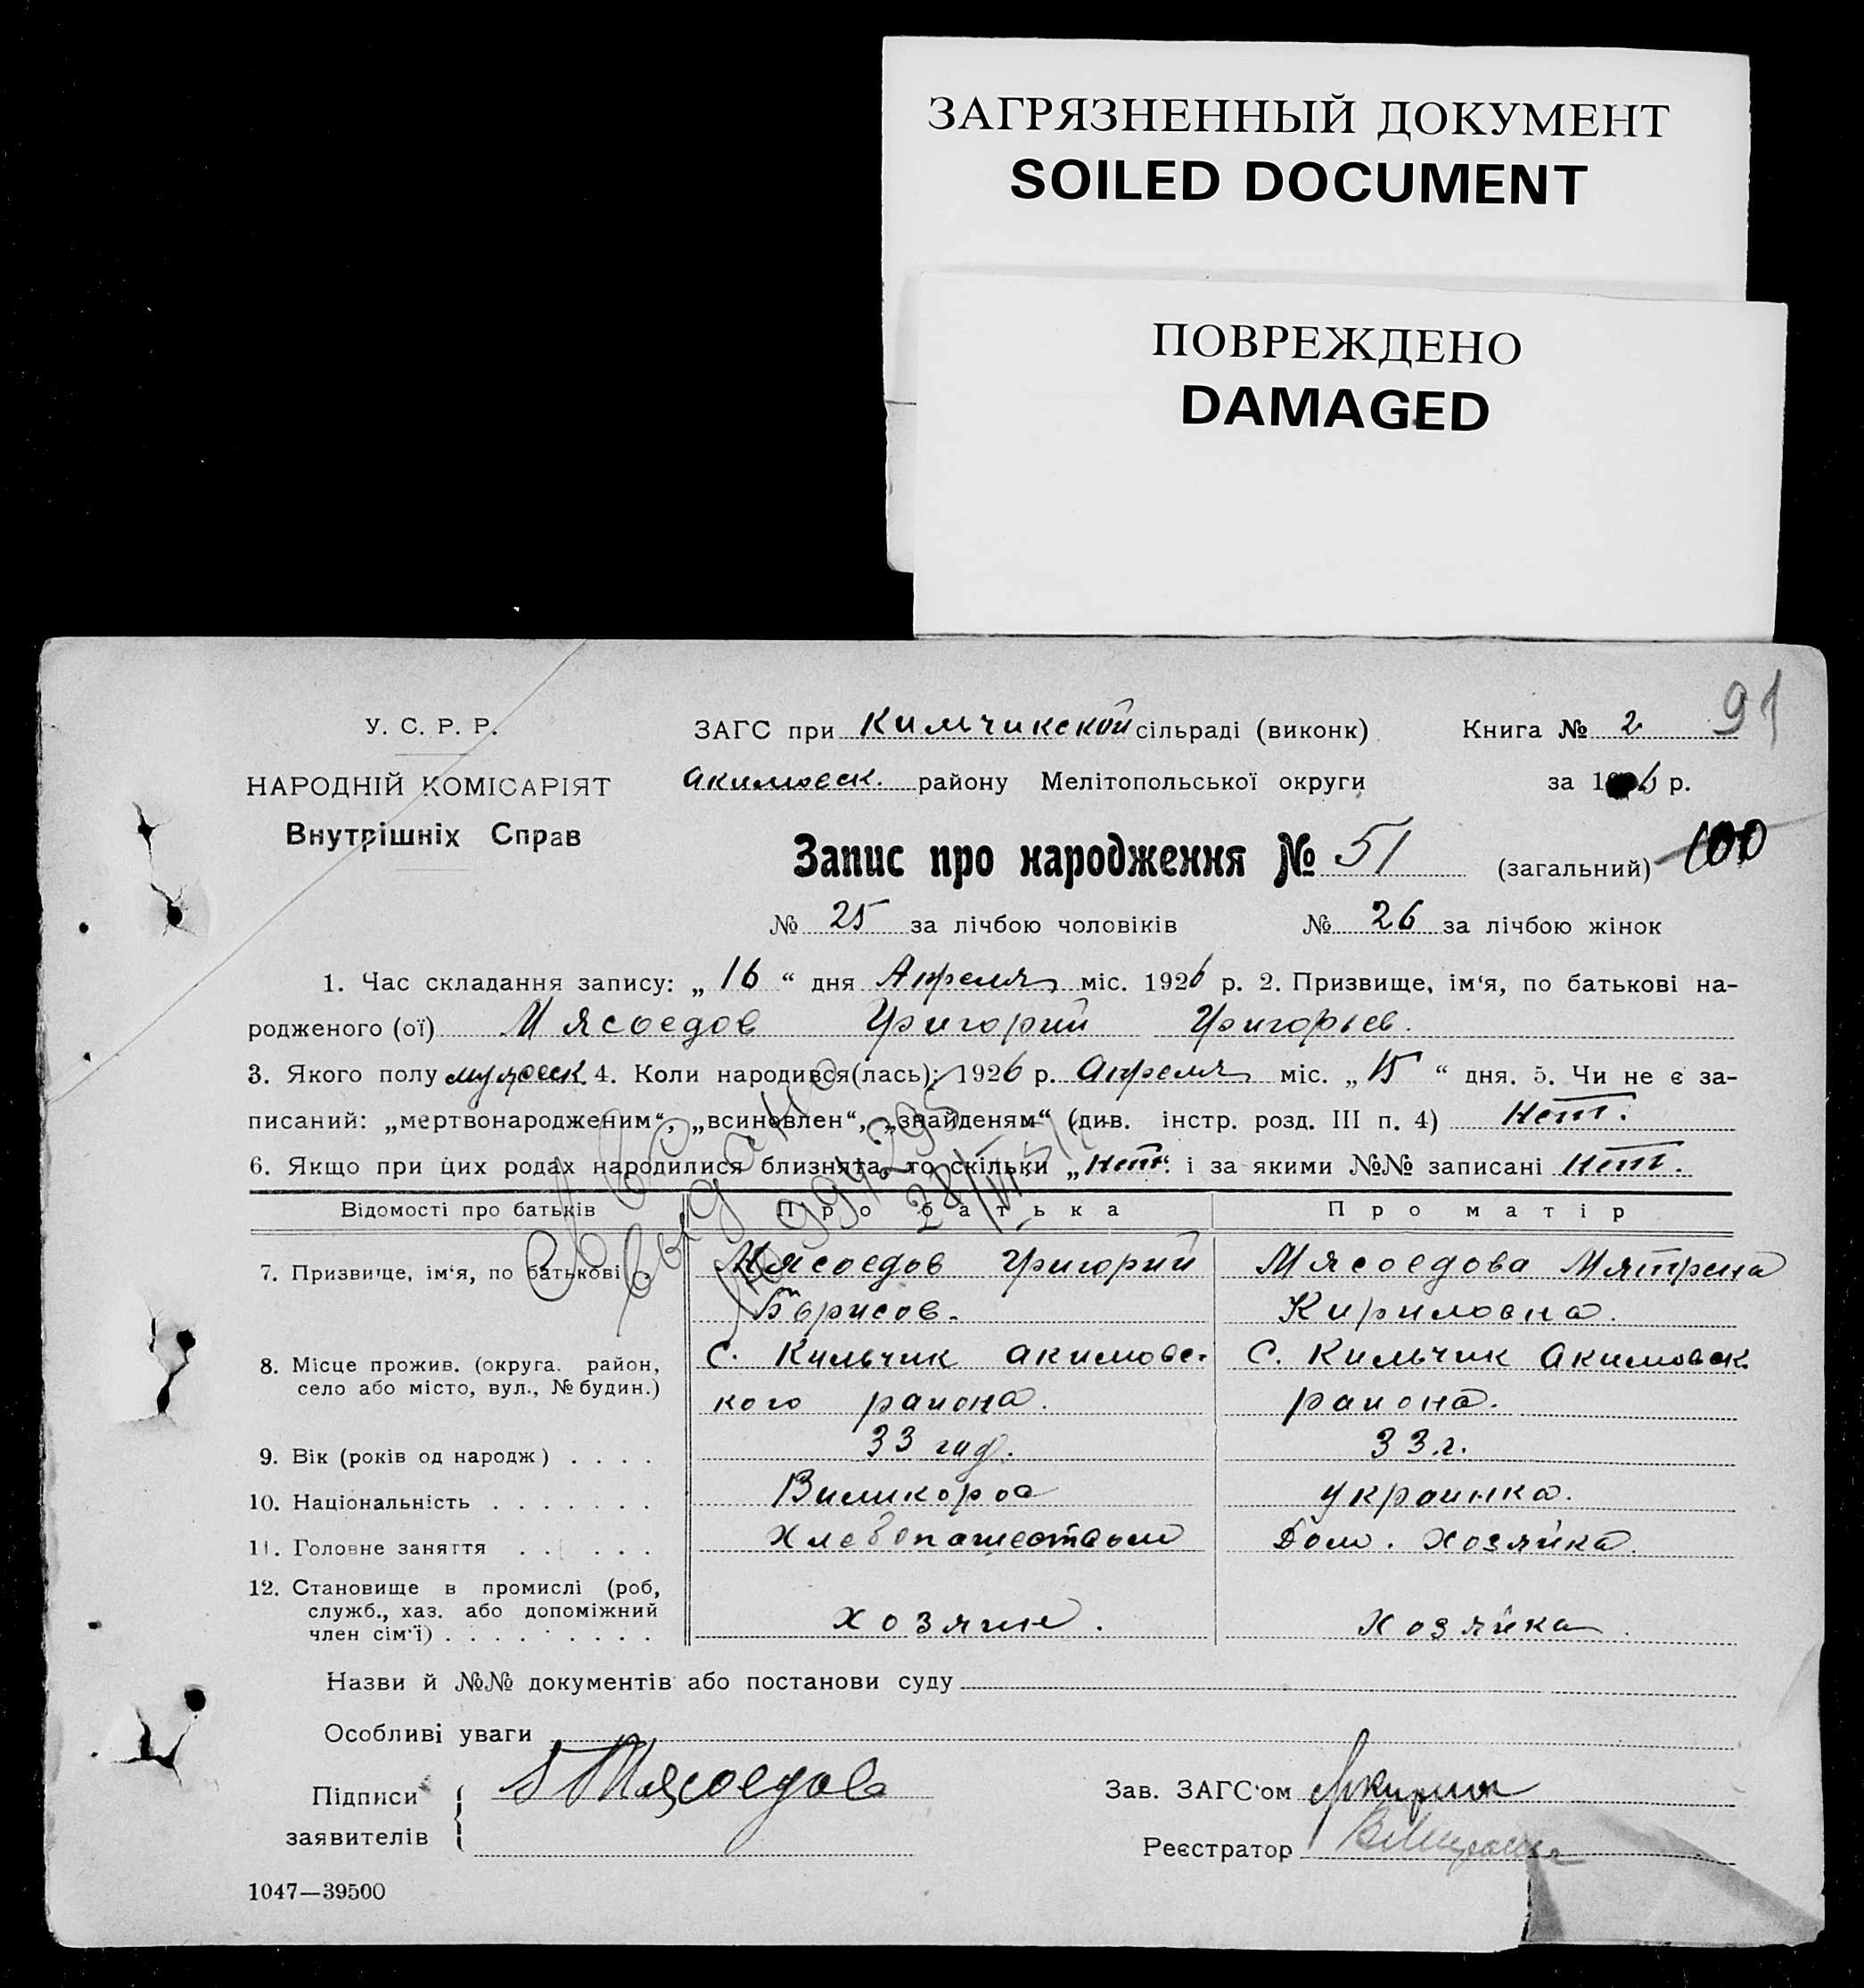 ЗАГРЯЗНЕННЫЙ ДОКУМЕНТ
SOILED DOCUMENT
ПОВРЕЖДЕНО
DAMAGED
91
У. С. Р. Р.
НАРОДНІЙ КОМІСАРІЯТ
Внутрішніх Справ
ЗАГС при Кильчикской сільраді (виконк)
Книга № 2
Акимовск. району Мелітопольської округи
за 1926 р.
Запис про народження № 51 (загальний) 100
№ 25 за лічбою чоловіків № 26 за лічбою жінок
1. Час складання запису: „ 16 “ дня Апреля міс. 1926 р. 2. Призвище, ім'я, по батькові на-
родженого (ої) Мясоедов Григорий Григорьев.
3. Якого полу мужеск. 4. Коли народився(лась): 1926 р. Апреля міс. „ 15 “ дня. 5. Чи не є за-
писаний: „мертвонародженим“, „всиновлен“, „знайденям“ (див. інстр. розд. III п. 4) Нет.
6. Якщо при цих родах народилися близнята, то скільки „Нет“. і за якими №№ записані Нет.
Відомості про батьків Про батька Про матір
7. Призвище, ім'я, по батькові
Мясоедов Григорий
Борисов.
Мясоедова Мятрена
Кириловна.
8. Місце прожив. (округа. район,
село або місто, вул., № будин.)
С. Кильчик Акимовс-
кого раиона.
С. Кильчик Акимовск.
раиона.
9. Вік (років од народж) . . . . 33 год. 33.г.
10. Національність . . . . . . . Виликороса украинка.
11. Головне заняття . . . . . Хлебопашеством Дом. Хозяйка.
12. Становище в промислі (роб,
служб., хаз. або допоміжний
член сім'ї) . . . . . . . . . хозяин. Хозяйка
Назви й №№ документів або постанови суду
Особливі уваги
Підписи
заявителів
Мясоедов
Зав. ЗАГС'ом
Реєстратор
1047—39500